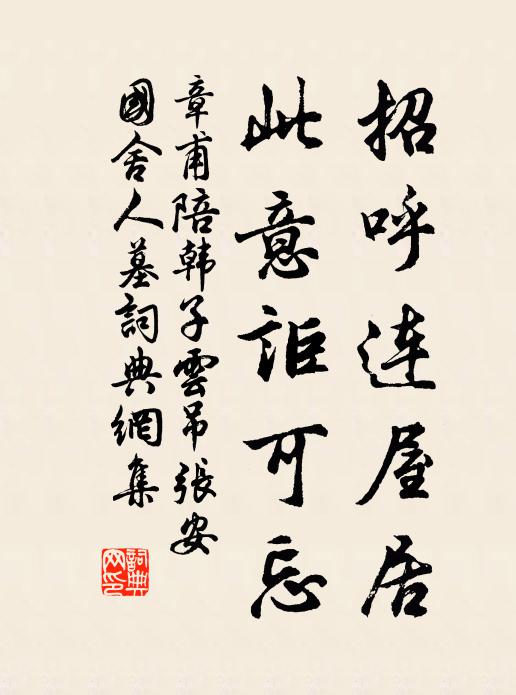 招呼连屋居
此意讵可忘
章甫陪韩子雲吊張安
國舍人墓詞典網集
詞典
网印